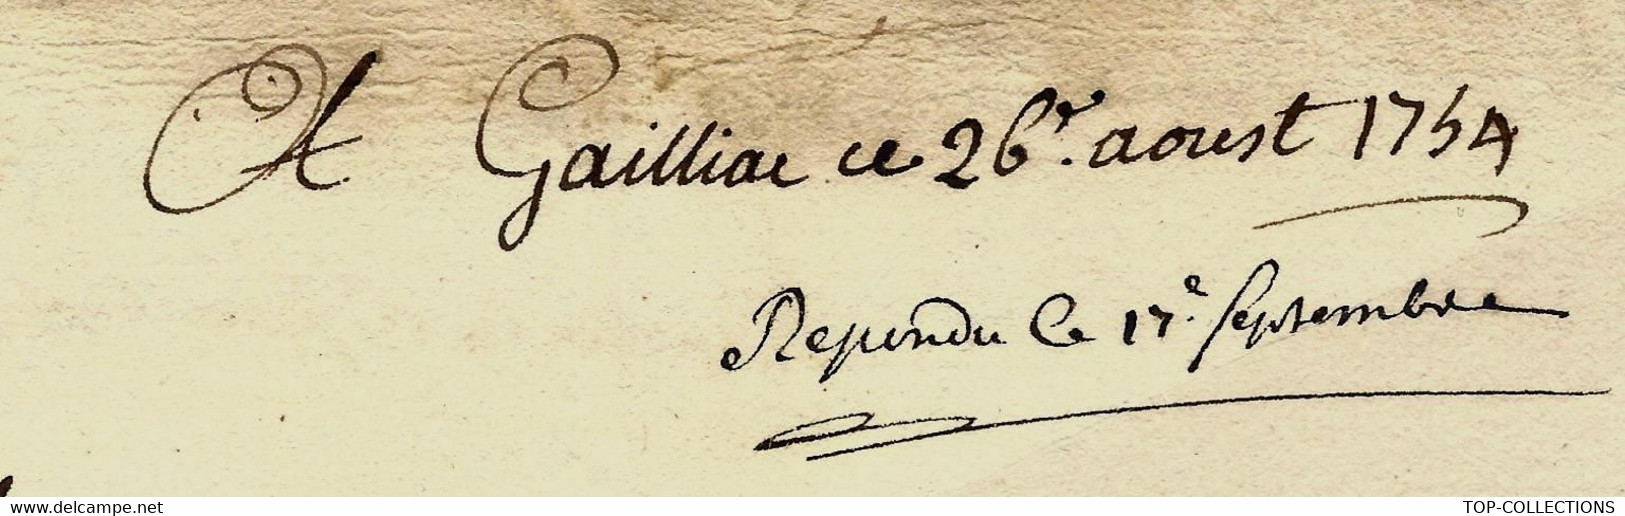 A Gailliac ce 26r. aoust 1754
Repondu le 17e. septembre
delcampe.net
TOP-COLLECTIONS